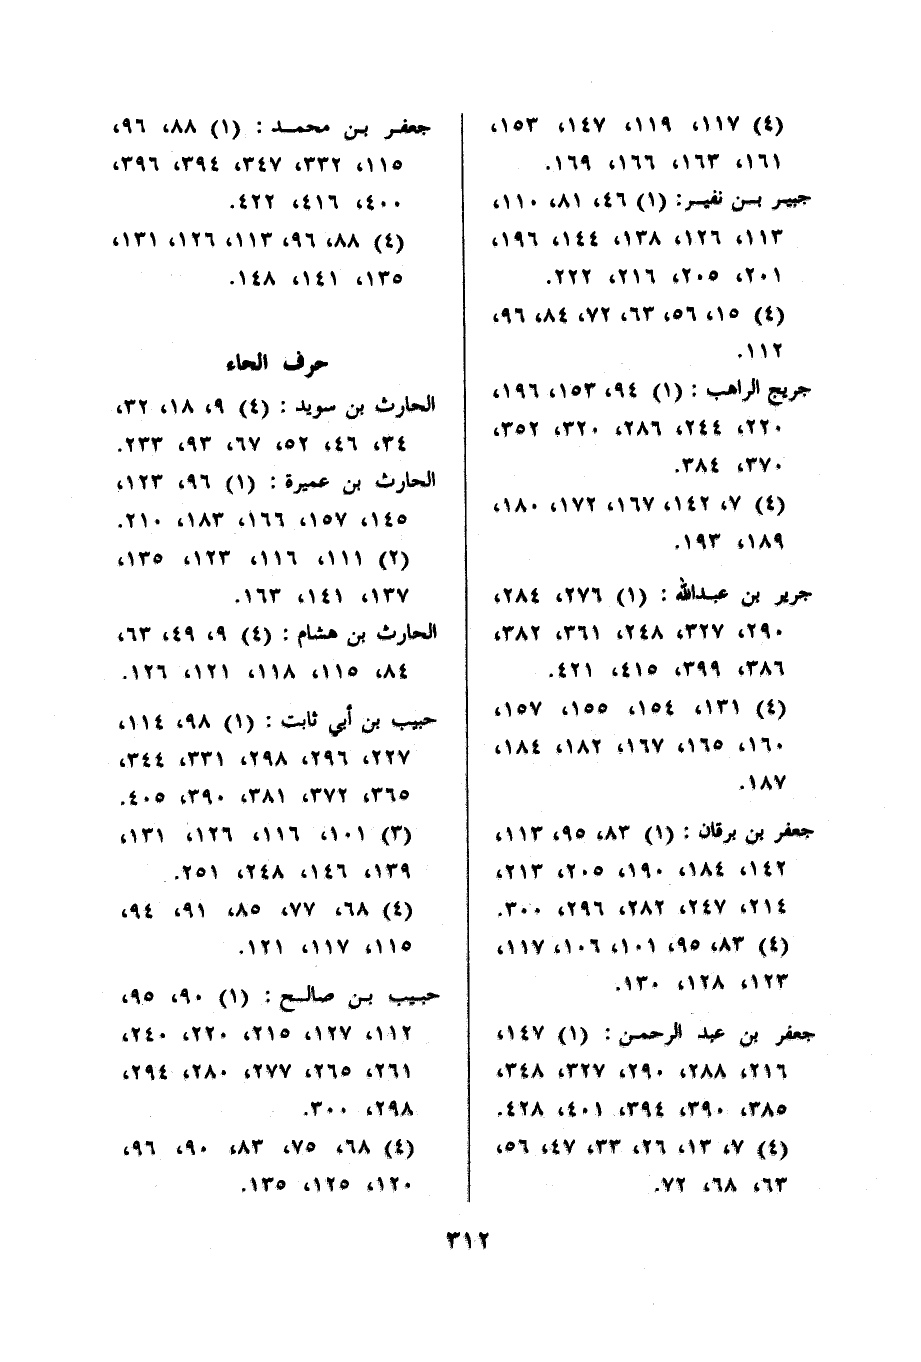 (٤) ١١٧، ١١٩، ١٤٧، ١٥٣،
١٦١، ١٦٣، ١٦٦، ١٦٩.
جبير بن نفير: (١) ٤٦، ٨١، ١١٠،
١١٣، ١٢٦، ١٣٨، ١٤٤، ١٩٦،
٢٠١، ٢٠٥، ٢١٦، ٢٢٢.
(٤) ١٥، ٥٦، ٦٣، ٧٢، ٨٤، ٩٦،
١١٢.
جريج الراهب: (١) ٩٤، ١٥٣، ١٩٦،
٢٢٠، ٢٤٤، ٢٨٦، ٣٢٠، ٣٥٢،
٣٧٠، ٣٨٤.
(٤) ٧، ١٤٢، ١٦٧، ١٧٢، ١٨٠،
١٨٩، ١٩٣.
جرير بن عبدالله: (١) ٢٧٦، ٢٨٤،
٢٩٠، ٣٢٧، ٢٤٨، ٣٦١، ٣٨٢،
٣٨٦، ٣٩٩، ٤١٥، ٤٢١.
(٤) ١٣١، ١٥٤، ١٥٥، ١٥٧،
١٦٠، ١٦٥، ١٦٧، ١٨٢، ١٨٤،
١٨٧.
جعفر بن برقان: (١) ٨٣، ٩٥، ١١٣،
١٤٢، ١٨٤، ١٩٠، ٢٠٥، ٢١٣،
٢١٤، ٢٤٧، ٢٨٢، ٢٩٦، ٣٠٠.
(٤) ٨٣، ٩٥، ١٠١، ١٠٦، ١١٧،
١٢٣، ١٢٨، ١٣٠.
جعفر بن عبد الرحمن: (١) ١٤٧،
٢١٦، ٢٨٨، ٢٩٠، ٣٢٧، ٣٤٨،
٣٨٥، ٣٩٠، ٣٩٤، ٤٠١، ٤٢٨.
(٤) ٧، ١٣، ٢٦، ٣٣، ٤٧، ٥٦،
٦٣، ٦٨، ٧٢.
جعفر بن محمد: (١) ٨٨، ٩٦،
١١٥، ٣٣٢، ٣٤٧، ٣٩٤، ٣٩٦،
٤٠٠، ٤١٦، ٤٢٢.
(٤) ٨٨، ٩٦، ١١٣، ١٢٦، ١٣١،
١٣٥، ١٤١، ١٤٨.
حرف الحاء
الحارث بن سويد: (٤) ٩، ١٨، ٣٢،
٣٤، ٤٦، ٥٢، ٦٧، ٩٣، ٢٣٣.
الحارث بن عميرة: (١) ٩٦، ١٢٣،
١٤٥، ١٥٧، ١٦٦، ١٨٣، ٢١٠.
(٢) ١١١، ١١٦، ١٢٣، ١٣٥،
١٣٧، ١٤١، ١٦٣.
الحارث بن هشام: (٤) ٩، ٤٩، ٦٣،
٨٤، ١١٥، ١١٨، ١٢١، ١٢٦.
حبيب بن أبي ثابت: (١) ٩٨، ١١٤،
٢٢٧، ٢٩٦، ٢٩٨، ٣٣١، ٣٤٤،
٣٦٥، ٣٧٢، ٣٨١، ٣٩٠، ٤٠٥.
(٣) ١٠١، ١١٦، ١٢٦، ١٣١،
١٣٩، ١٤٦، ٢٤٨، ٢٥١.
(٤) ٦٨، ٧٧، ٨٥، ٩١، ٩٤،
١١٥، ١١٧، ١٢١.
حبيب بن صالح: (١) ٩٠، ٩٥،
١١٢، ١٢٧، ٢١٥، ٢٢٠، ٢٤٠،
٢٦١، ٢٦٥، ٢٧٧، ٢٨٠، ٢٩٤،
٢٩٨، ٣٠٠.
(٤) ٦٨، ٧٥، ٨٣، ٩٠، ٩٦،
١٢٠، ١٢٥، ١٣٥.
٣١٢